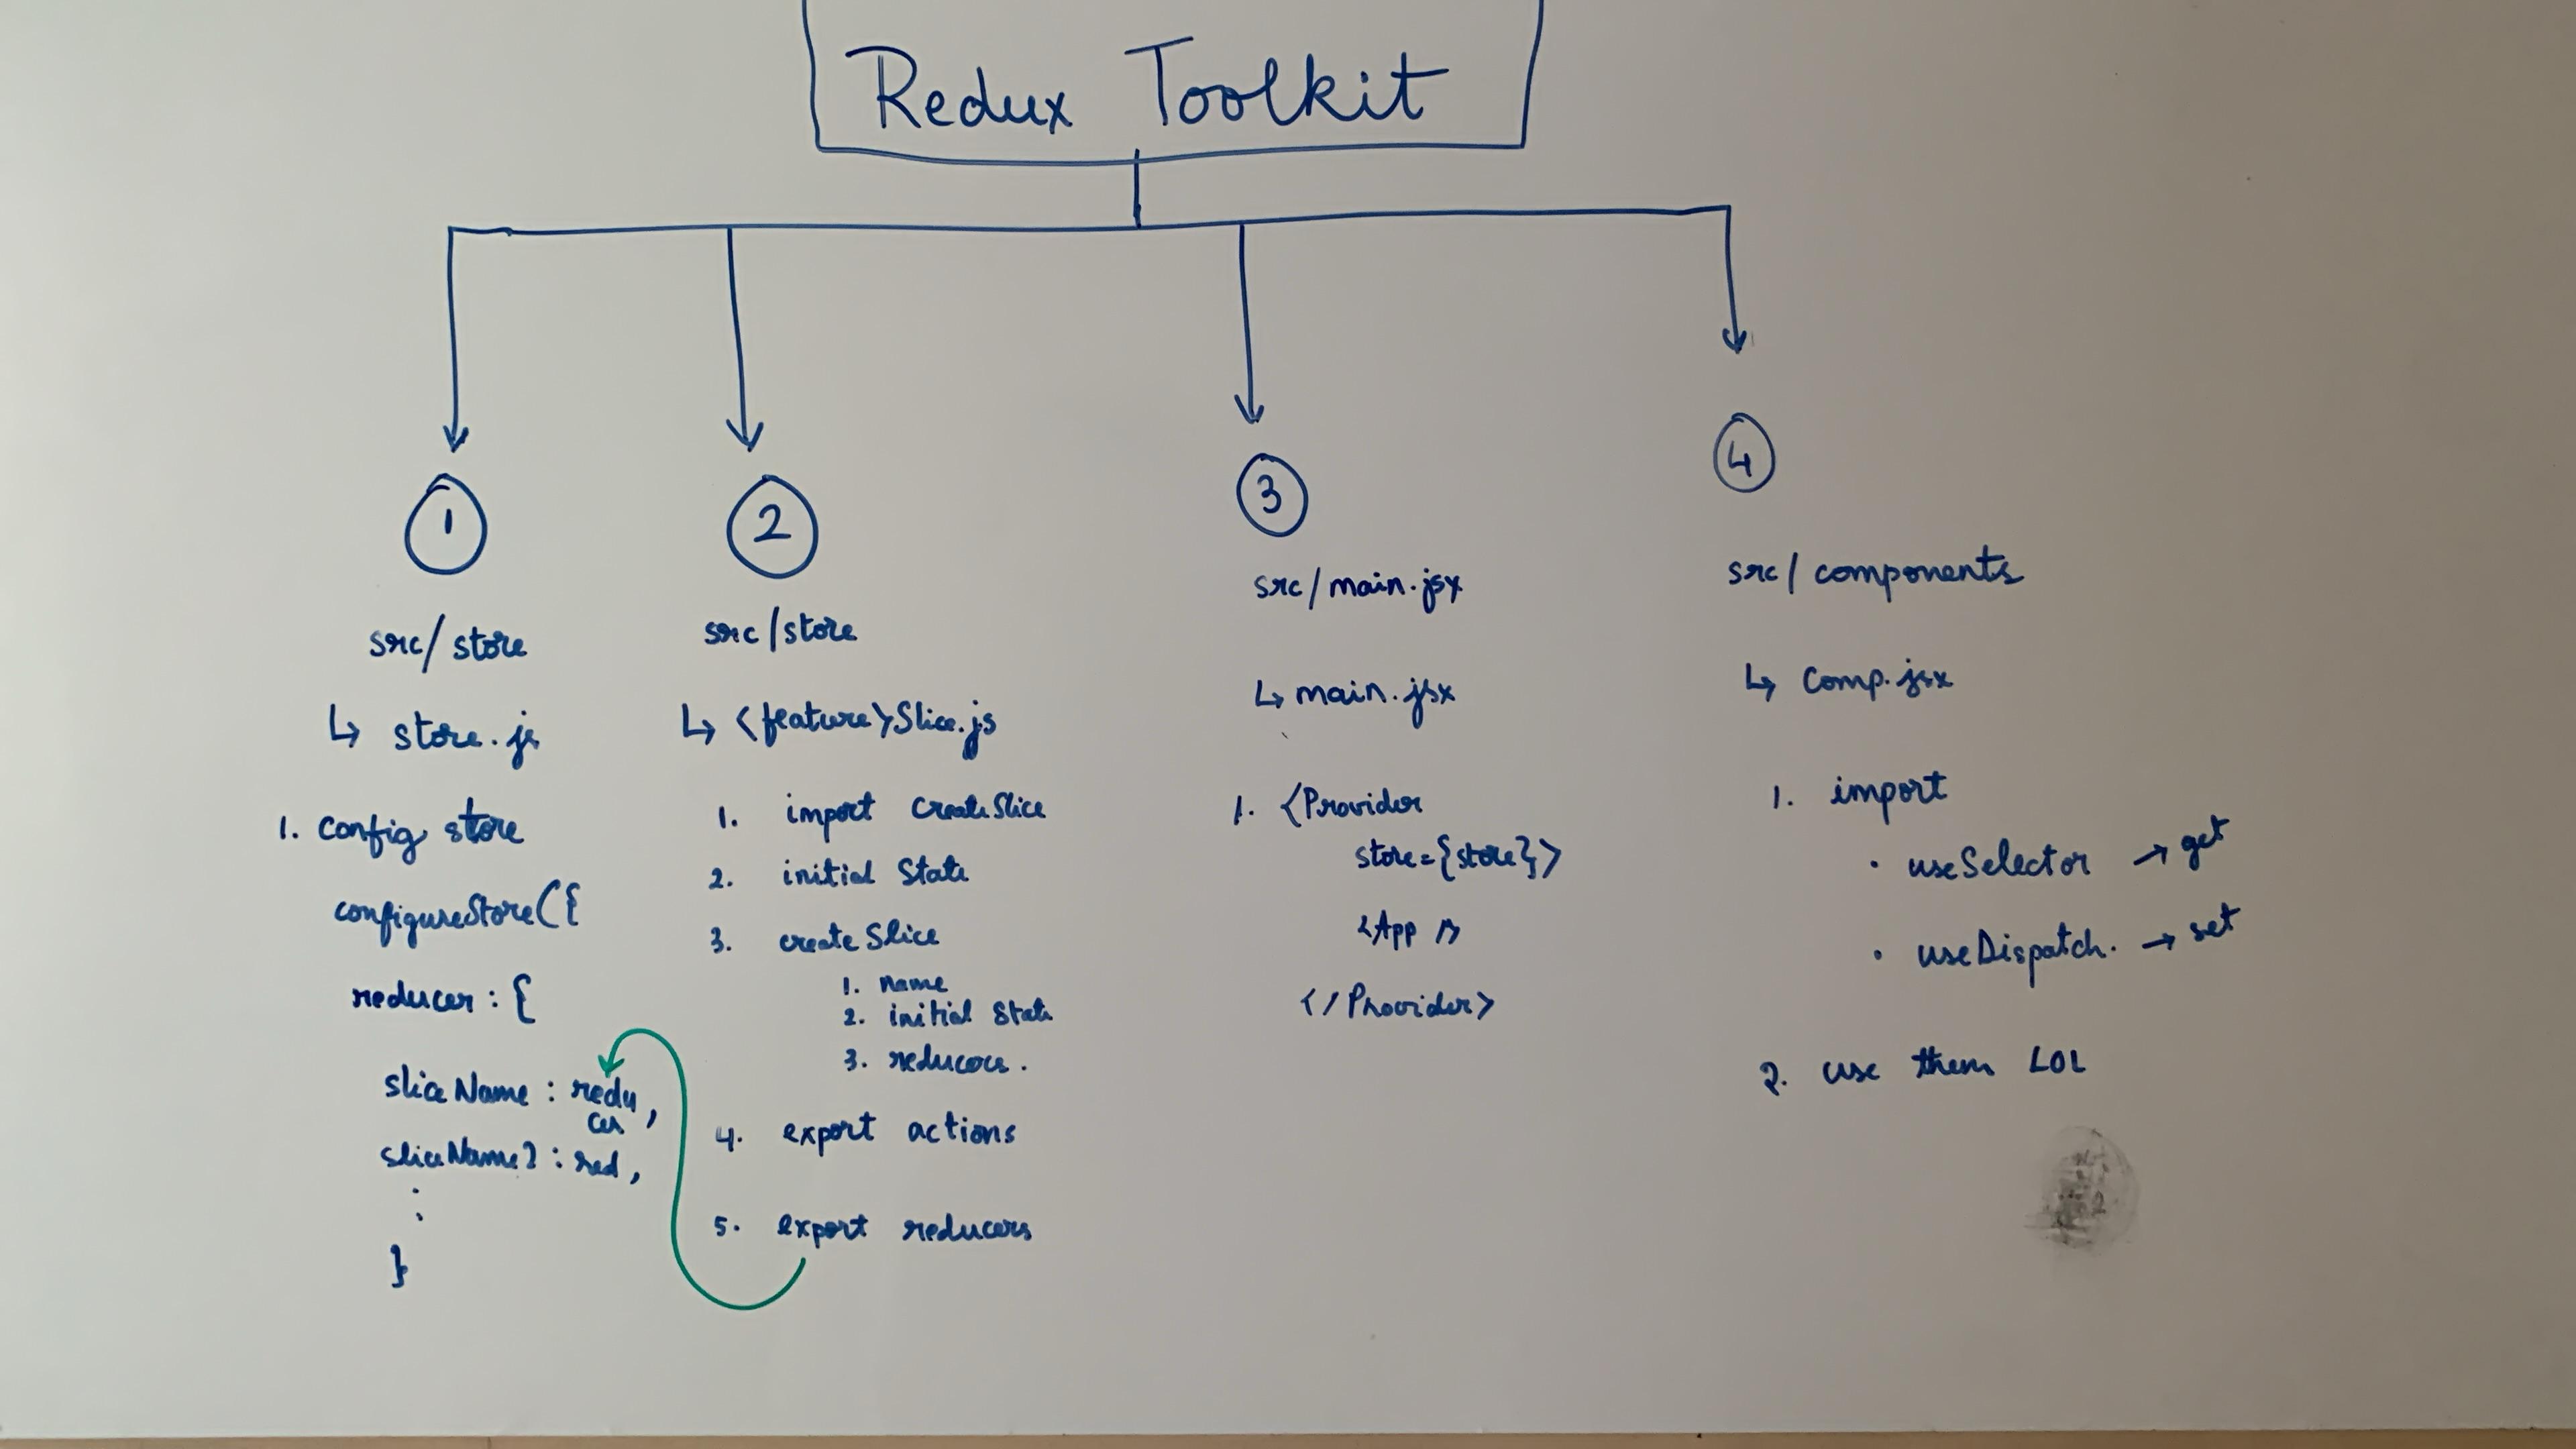 Redux Toolkit
1
src/store
↳ store.js
1. config store
configureStore({
reducer : {
sliceName : redu
cer ,
sliceName2 : red ,
:
}
2
src/store
↳ <feature>Slice.js
1. import createSlice
2. initial State
3. create Slice
1. name
2. initial State
3. reducers.
4. export actions
5. export reducers
3
src/main.jsx
↳ main.jsx
1. <Provider
store={store}>
<App />
</Provider>
4
src/components
↳ Comp.jsx
1. import
• useSelector → get
• useDispatch. → set
2. use them LOL